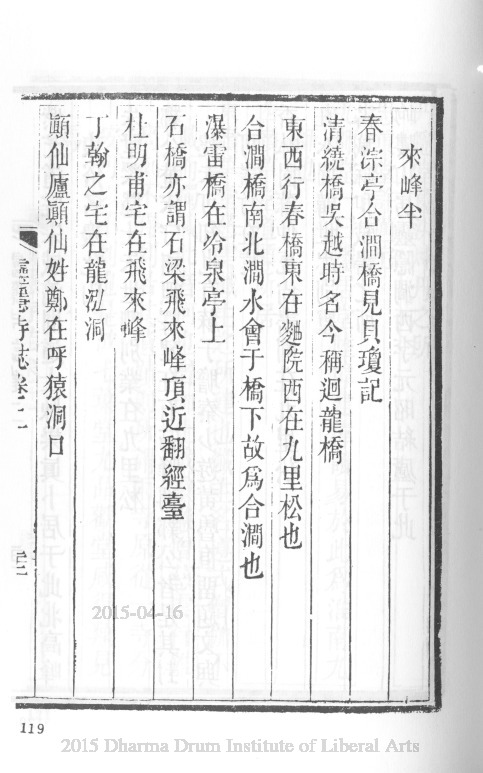 來峰半
春淙亭合澗橋見貝瓊記
清繞橋吳越時名今稱迴龍橋
東西行春橋東在麯院西在九里松也
合澗橋南北澗水會于橋下故爲合澗也
瀑雷橋在冷泉亭上
石橋亦謂石梁飛來峰頂近翻經臺
杜明甫宅在飛來峰
丁翰之宅在龍泓洞
顚仙廬顚仙姓鄭在呼猿洞口
2015-04-16
119
2015 Dharma Drum Institute of Liberal Arts